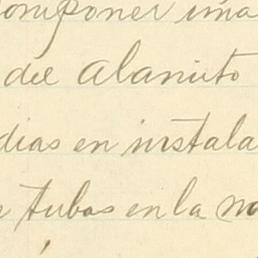 componer una
del Alamito
dias en instala
tubos en la